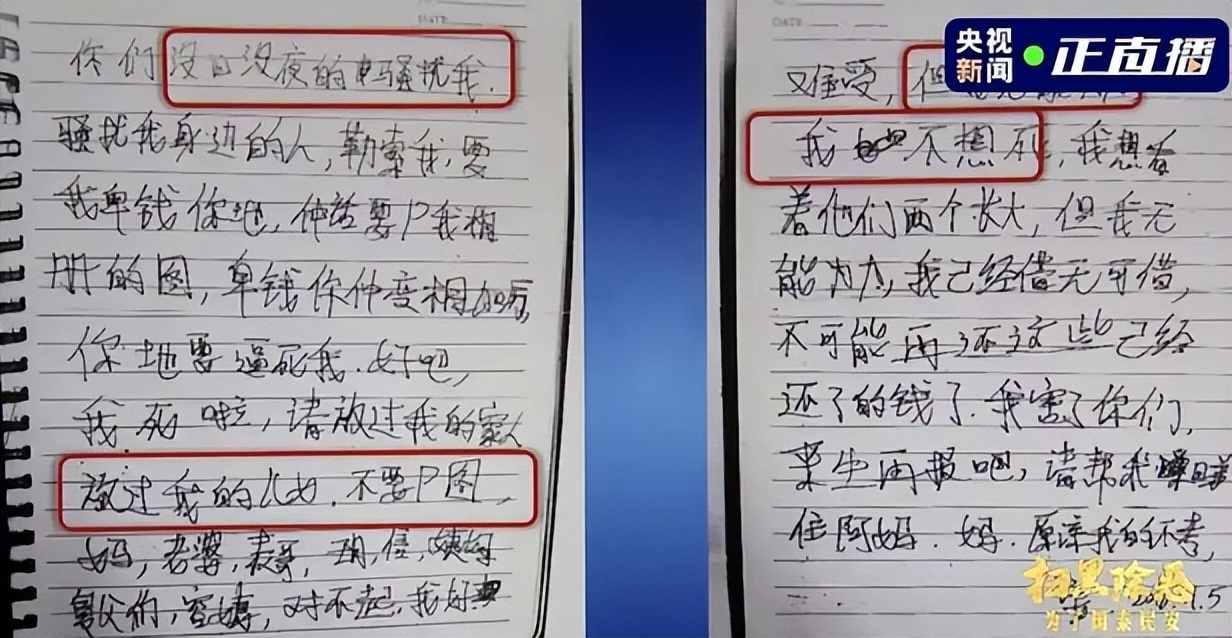 你们没日没夜的电骚扰我.
骚扰我身边的人,勒索我,要
我卑钱你地,仲话要P我相
册的图,卑钱你仲变相加码,
你地要逼死我.好吧,
我死啦,请放过我的家人
放过我的儿女.不要P图,
妈,老婆,表哥,
舅父们,对不起,我好
DATE
难受,但
我不想死,我想看
着他们两个长大,但我无
能为力,我已经借无可借,
不可能再还这些已经
还了的钱了.我害了你们,
来生再报吧,请帮我
住阿妈.妈.原谅我的不孝,
1.5
央视新闻
正直播
扫黑除恶
为了国泰民安